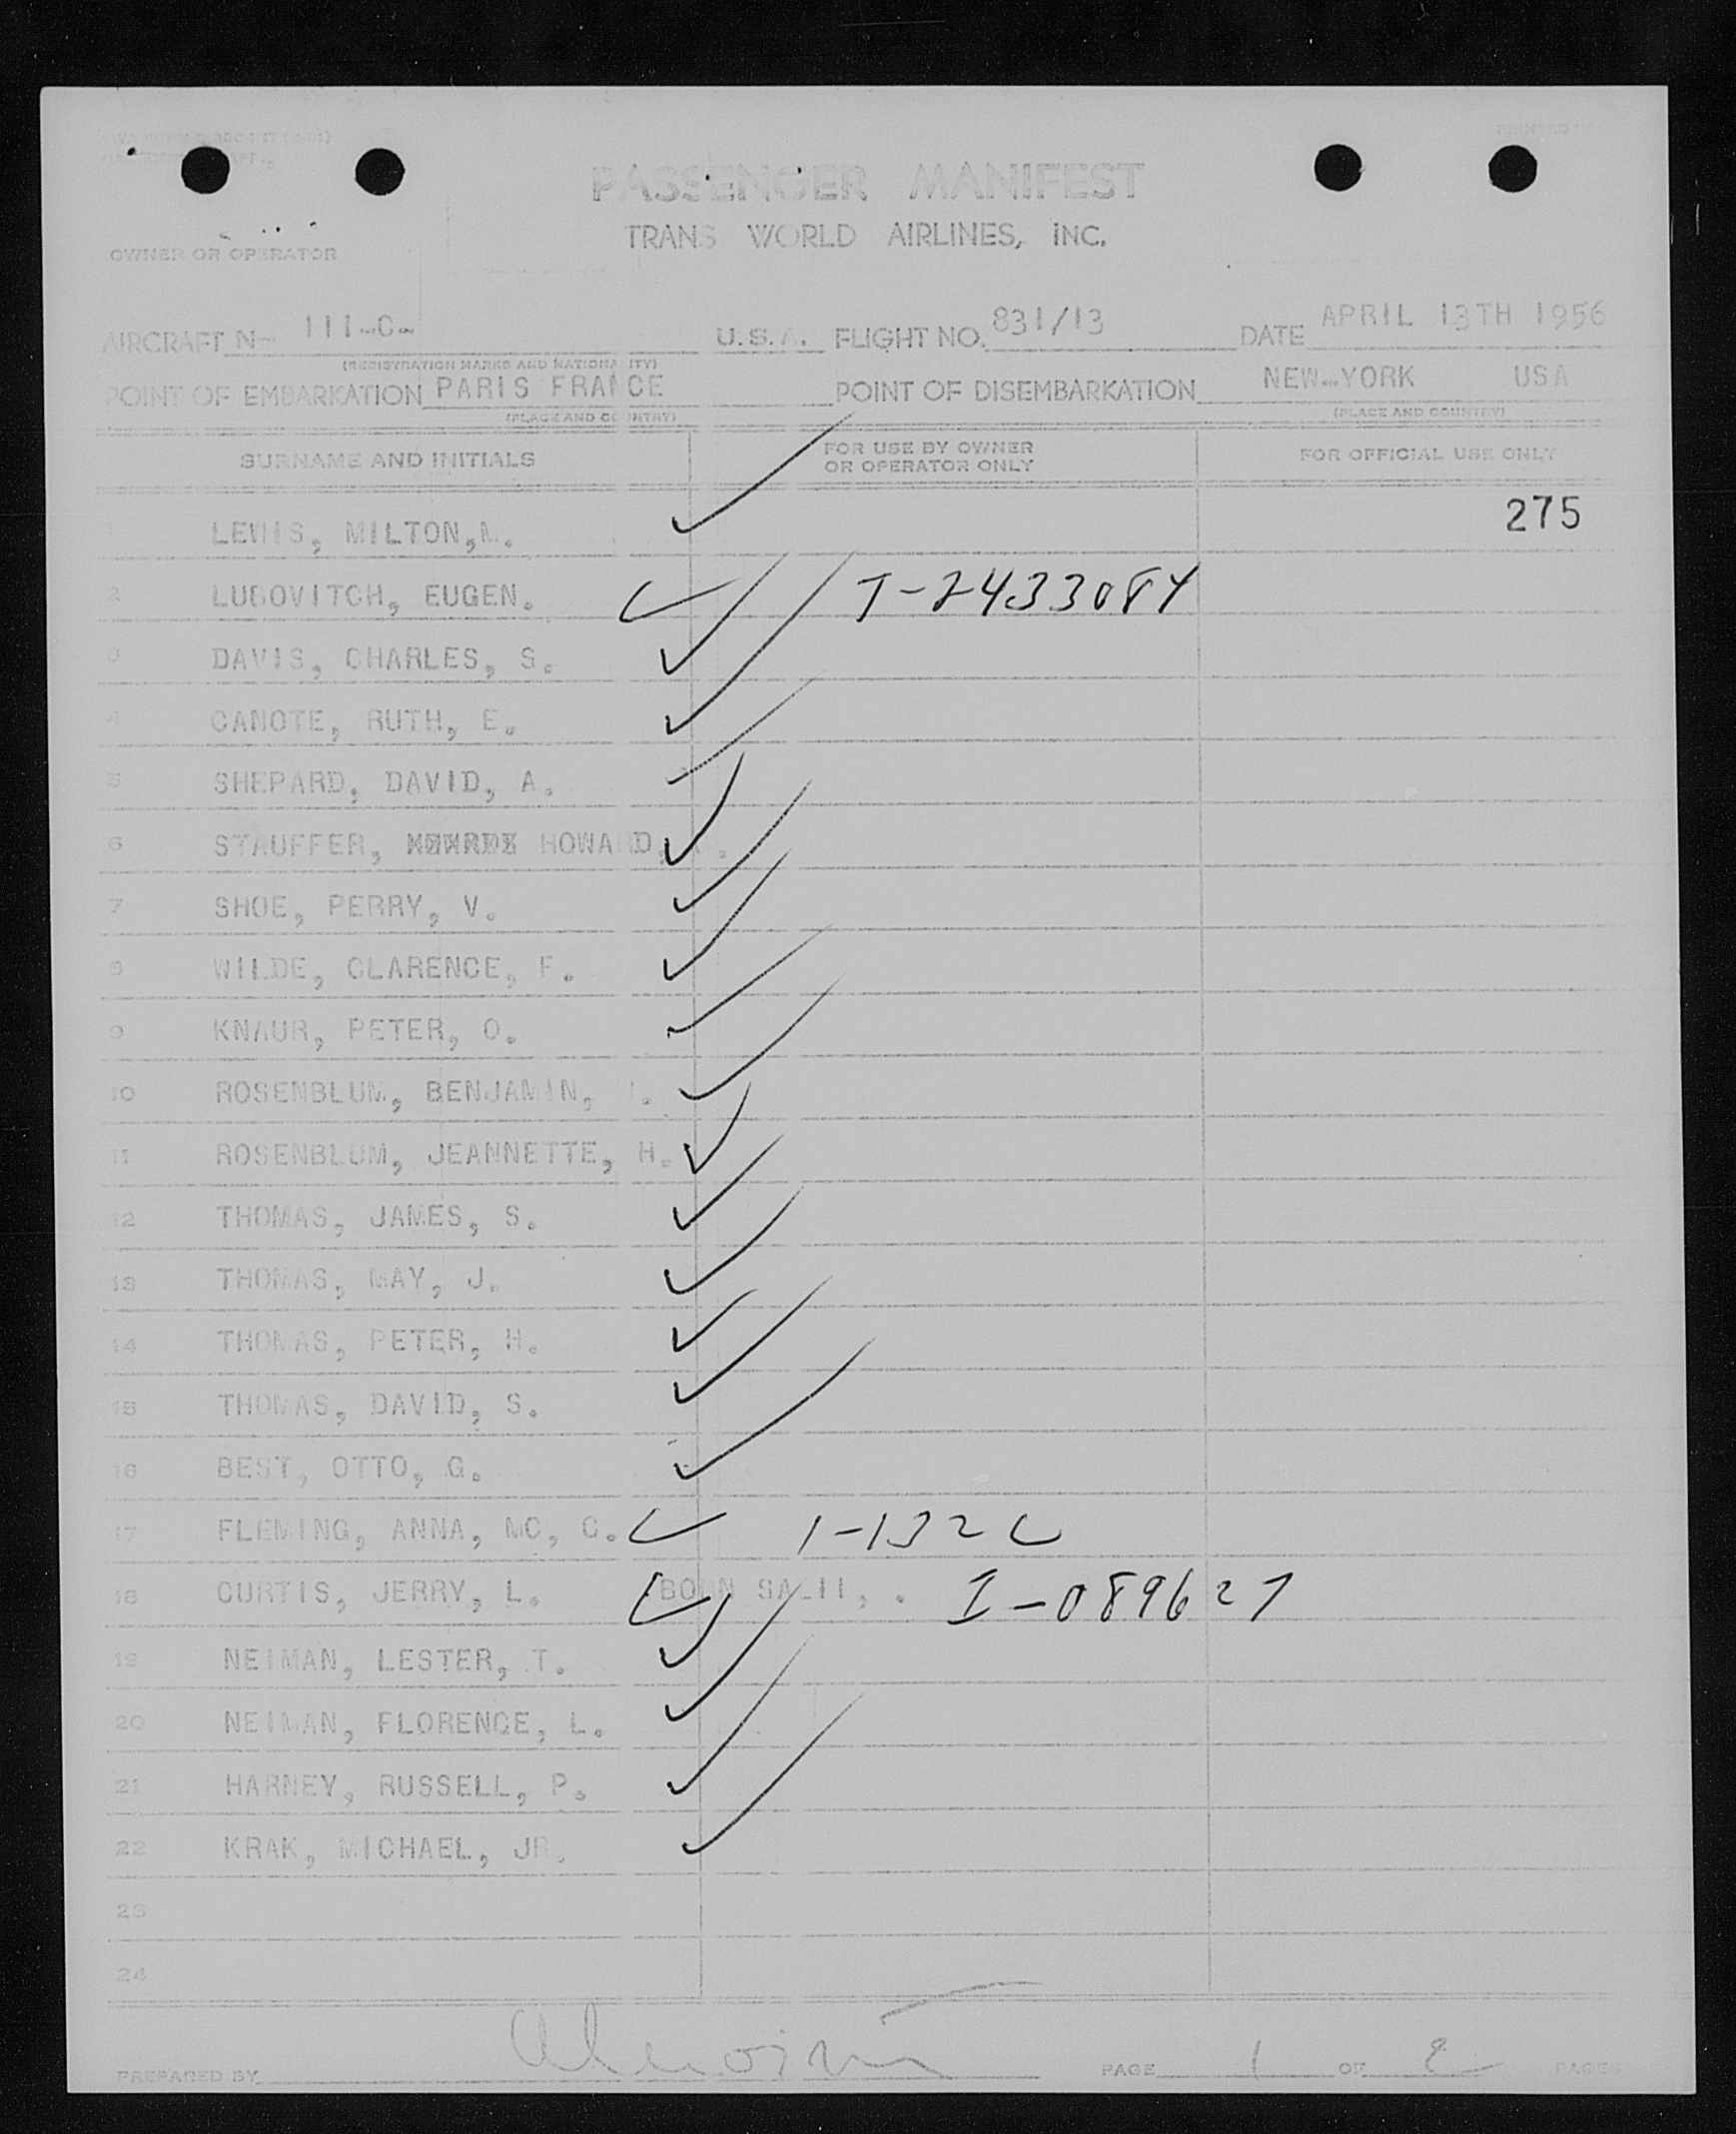 PASSENGER MANIFEST
TRANS WORLD AIRLINES, INC.
OWNER OR OPERATOR
AIRCRAFT N- 111-C- U.S.A. FLIGHT NO. 831/13 DATE APRIL 13TH 1956
(REGISTRATION MARKS AND NATIONALITY)
POINT OF EMBARKATION PARIS FRANCE POINT OF DISEMBARKATION NEW-YORK USA
(PLACE AND COUNTRY) (PLACE AND COUNTRY)
SURNAME AND INITIALS FOR USE BY OWNER OR OPERATOR ONLY FOR OFFICIAL USE ONLY
275
1 LEWIS, MILTON,M.
2 LUBOVITCH, EUGEN. T-2433084
3 DAVIS, CHARLES, S.
4 CANOTE, RUTH, E.
5 SHEPARD, DAVID, A.
6 STAUFFER, HOWARD,
7 SHOE, PERRY, V.
8 WILDE, CLARENCE, F.
9 KNAUR, PETER, O.
10 ROSENBLUM, BENJAMIN,
11 ROSENBLUM, JEANNETTE, H.
12 THOMAS, JAMES, S.
13 THOMAS, MAY, J.
14 THOMAS, PETER, H.
15 THOMAS, DAVID, S.
16 BEST, OTTO, G.
17 FLEMING, ANNA, MC, C. 1-132
18 CURTIS, JERRY, L. I-089627
19 NEIMAN, LESTER, T.
20 NEIMAN, FLORENCE, L.
21 HARNEY, RUSSELL, P.
22 KRAK, MICHAEL, JR.
23
24
PREPARED BY PAGE 1 OF 2 PAGES